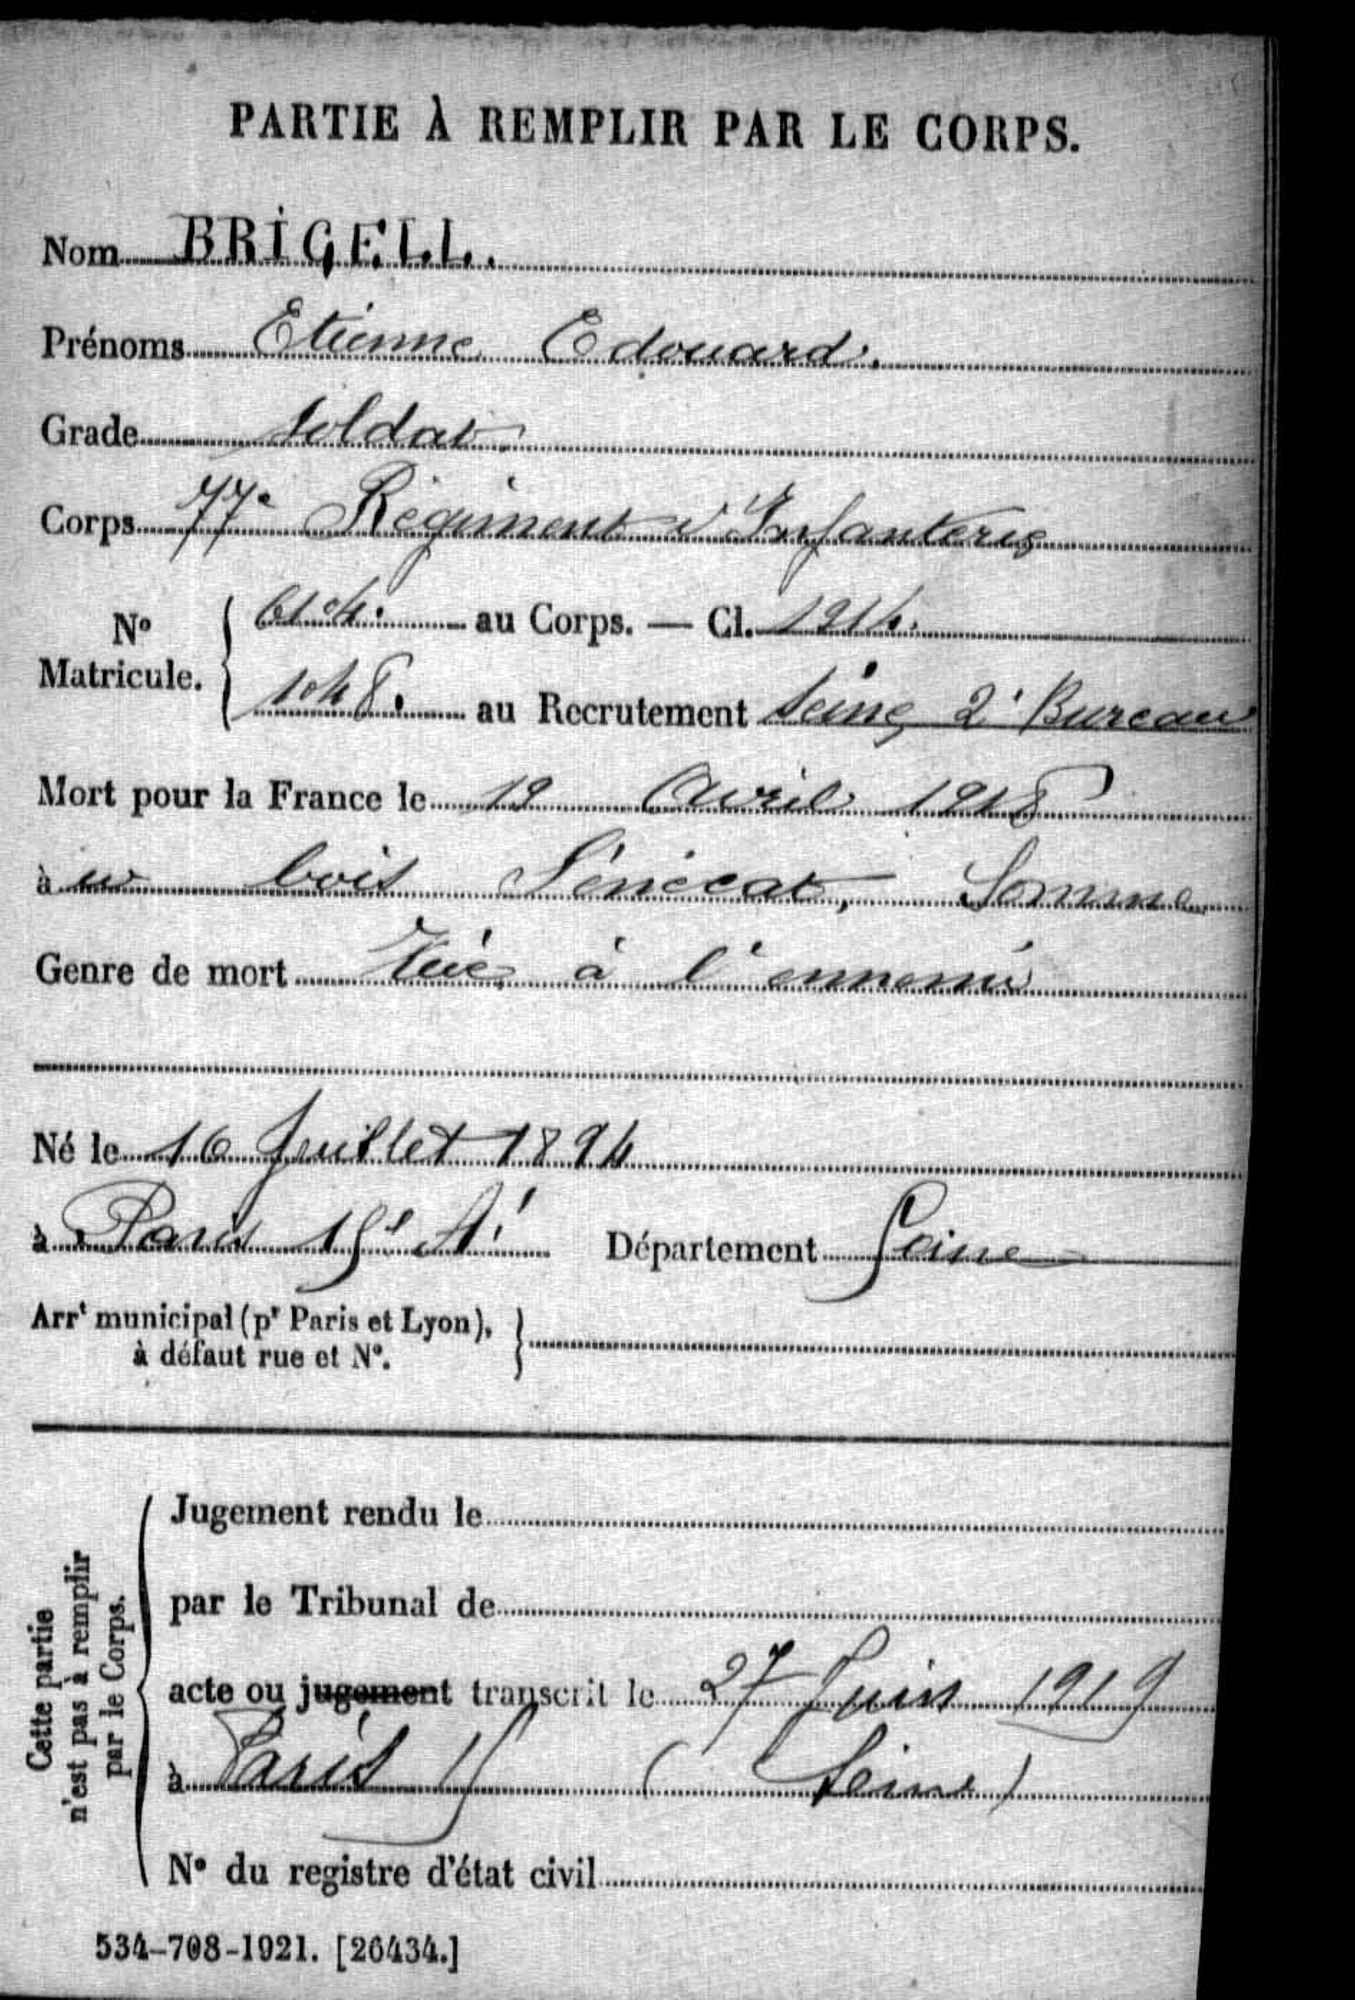 PARTIE À REMPLIR PAR LE CORPS.
Nom BRIGELL.
Prénoms Etienne Edouard.
Grade Soldat
Corps 77e Régiment d'Infanterie
No Matricule. { 6104. au Corps. — Cl. 1914.
1048. au Recrutement Seine 2e Bureau
Mort pour la France le 19 Avril 1918
à au bois Sénécat, Somme
Genre de mort Tué à l'ennemi
Né le 16 Juillet 1894
à Paris 15e At Département Seine
Arrt municipal (pr Paris et Lyon),
à défaut rue et No.
Cette partie
n'est pas à remplir
par le Corps.
Jugement rendu le
par le Tribunal de
acte ou jugement transcrit le 27 Juin 1919
à Paris 15 (Seine)
No du registre d'état civil
534-708-1921. [26434.]